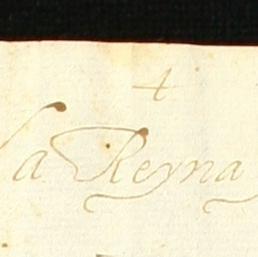 4
la Reyna